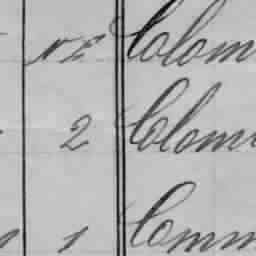 NE Colom
2 Colom
1 Comm